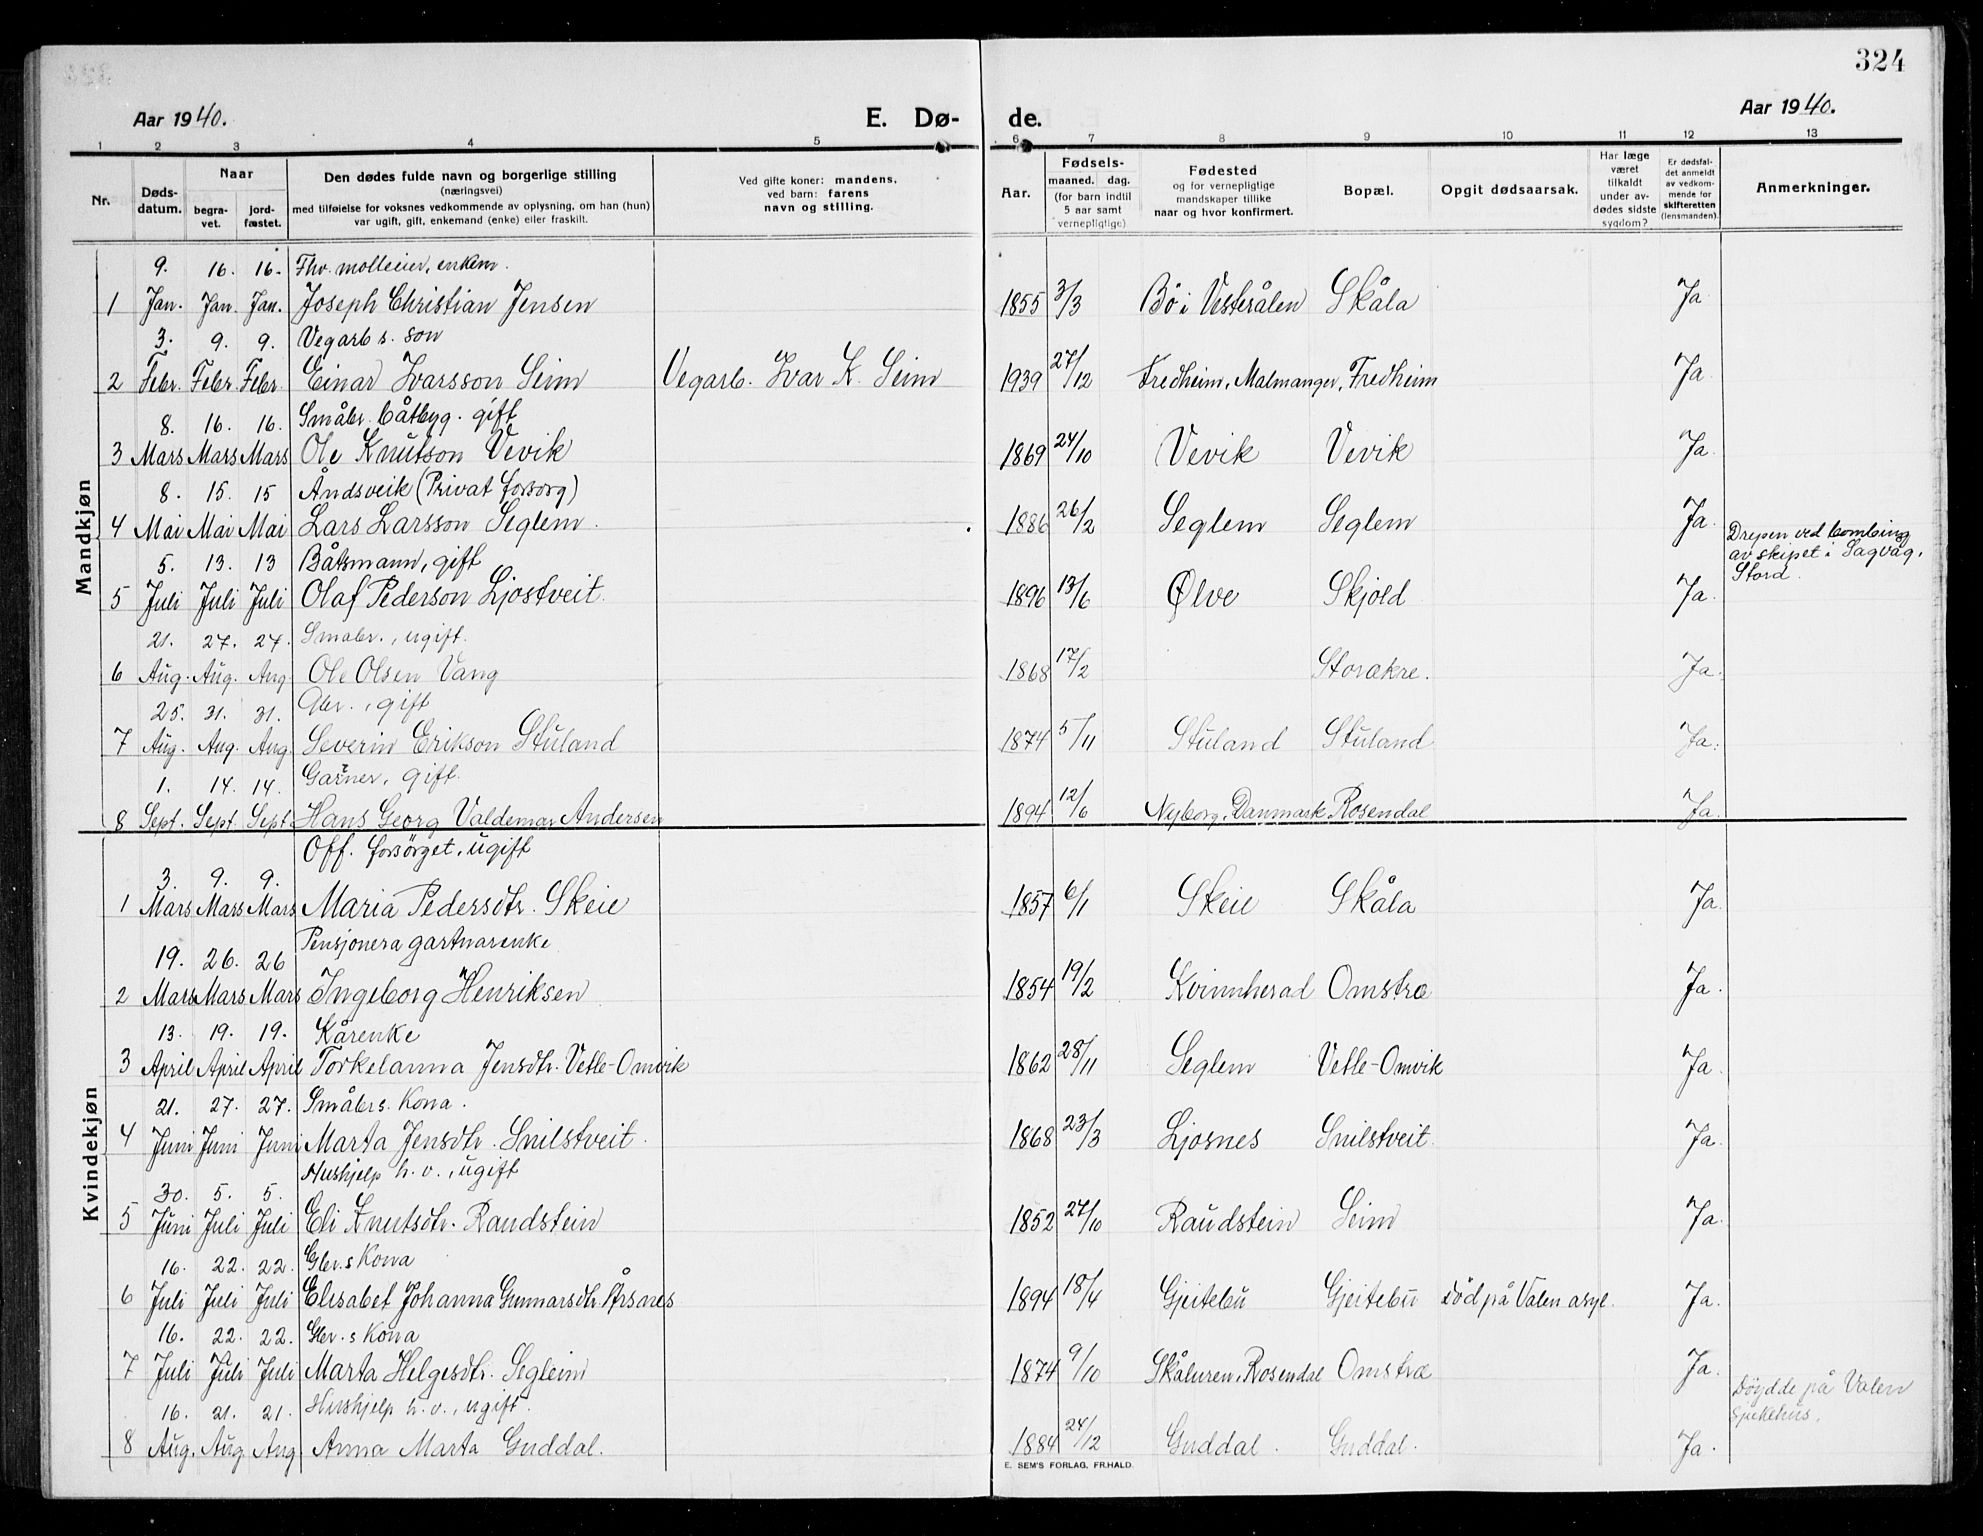 324
Aar 1940.
E. Dø-
de.
Aar 1940.
1 2 3 4 5 6 7 8 9 10 11 12 13
Nr.
Døds-
datum.
Naar
begra-
vet.
jord-
fæstet.
Den dødes fulde navn og borgerlige stilling
(næringsvei)
med tilføielse for voksnes vedkommende av oplysning, om han (hun)
var ugift, gift, enkemand (enke) eller fraskilt.
Ved gifte koner: mandens,
ved barn: farens
navn og stilling.
Aar.
Fødsels-
maaned. dag.
(for barn indtil
5 aar samt
vernepligtige)
Fødested
og for vernepligtige
mandskaper tillike
naar og hvor konfirmert.
Bopæl.
Opgit dødsaarsak.
Har læge
været
tilkaldt
under av-
dødes sidste
sygdom?
Er dødsfal-
det anmeldt
av vedkom-
mende for
skifteretten
(lensmanden).
Anmerkninger.
Mandkjøn
9. 16. 16. Fhv. molleeier, enkem.
1 Jan. Jan. Jan. Joseph Christian Jensen 1855 3/3 Bö i Vesterålen Skåla Ja
3. 9. 9. Vegarb s. son
2 Febr. Febr. Febr. Einar Ivarsson Seim Vegarb. Ivar K. Seim 1939 27/12 Fredheim, Malmanger, Fredheim Ja.
8. 16. 16. Småbr. båtbyg. gift
3 Mars Mars Mars Ole Knutson Vevik 1869 24/10 Vevik Vevik Ja.
8. 15. 15 Åndsveik (Privat forsorg)
4 Mai Mai Mai Lars Larsson Seglem. 1886 26/2 Seglem Seglem Ja.
Drepen ved bombing
av skipet i Sagvåg,
Stord.
5. 13. 13 Båtsmann, gift
5 Juli Juli Juli Olaf Pederson Ljostveit. 1896 13/6 Ølve Skjold Ja.
21. 27. 27. Småbr., ugift.
6 Aug. Aug. Aug Ole Olsen Vang 1868 17/2 Storakre. Ja.
25. 31. 31. Gbr., gift
7 Aug. Aug. Aug. Severin Erikson Stuland 1874 5/11 Stuland Stuland Ja.
1. 14. 14. Garner, gift.
8 Sept. Sept. Sept. Hans Georg Valdemar Andersen 1894 12/6 Nyborg, Danmark Rosendal Ja.
Kvindekjøn
Off. forsörget, ugift
3. 9. 9.
1 Mars Mars Mars Maria Pedersdtr. Skeie 1857 6/1 Skeie Skåla Ja.
Pensjonera gartnarenke
19. 26. 26
2 Mars Mars Mars Ingeborg Henriksen 1854 19/2 Kvinnherad Omstra Ja.
13. 19. 19. Kårenke
3 April April April Torkelanna Jensdtr. Vetle-Omvik 1862 28/11 Seglem Vetle-Omvik Ja.
21. 27. 27. Småbrs. Kona.
4 Juni Juni Juni Marta Jensdtr. Snilstveit. 1868 23/3 Ljosnes Snilstveit. Ja.
Hushjelp h. v., ugift
30. 5. 5.
5 Juni Juli Juli Eli Knutsdtr. Raudstein 1852 27/10 Raudstein Seim Ja.
16. 22. 22. Gbr.s Kona
6 Juli Juli Juli Elisabet Johanna Gunnarsdtr. Årsnes 1894 18/4 Gjeitebu Gjeitebu död på Valen asyl. Ja.
16. 22. 22. Gbr.s Kona
7 Juli Juli Juli Marta Helgesdtr. Segleim 1874 9/10 Skåluren, Rosendal Omstra Ja.
16. 21. 21. Hushjelp h. v., ugift.
8 Aug. Aug. Aug Anna Marta Guddal. 1884 24/12 Guddal. Guddal. Ja.
Döydde på Valen
sjukehus.
E. SEM'S FORLAG, FR.HALD.